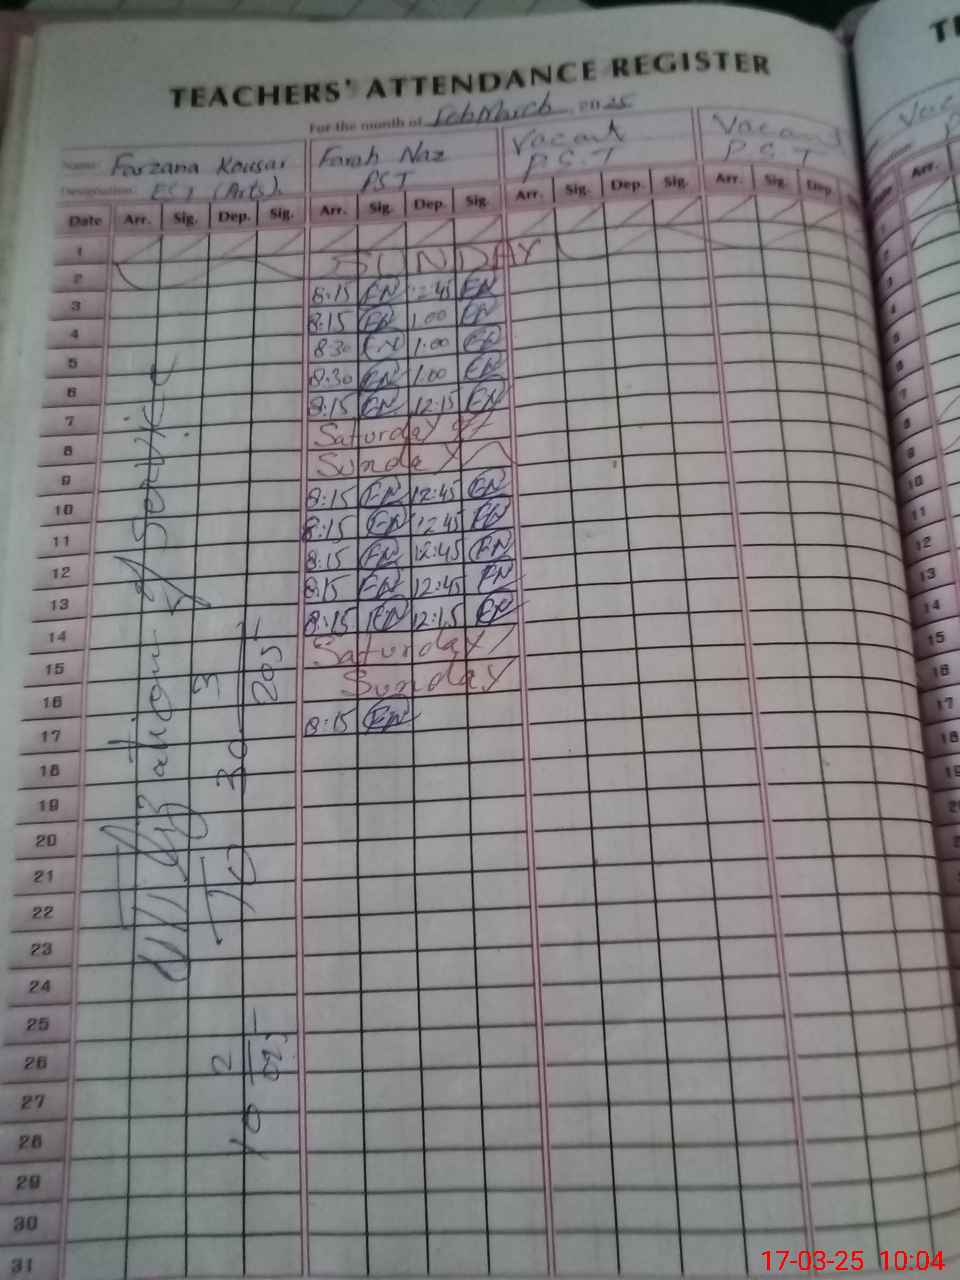 TEACHERS' ATTENDANCE REGISTER
For the month of Feb March 2025
Name: Farzana Kousar Farah Naz Vacant Vacant
Designation: EST (Arts). PST P.S.T P.S.T
Date Arr. Sig. Dep. Sig. Arr. Sig. Dep. Sig. Arr. Sig. Dep. Sig. Arr. Sig. Dep.
1
2 SUNDAY
3 8:15 FN 12:45 FN
4 8:15 FN 1:00 FN
5 8:30 FN 1:00 FN
6 8:30 FN 1:00 FN
7 8:15 FN 12:15 FN
8 Saturday
9 Sunday
10 8:15 FN 12:45 FN
11 8:15 FN 12:45 FN
12 8:15 FN 12:45 FN
13 8:15 FN 12:45 FN
14 8:15 FN 12:15 FN
15 Saturday
16 Sunday
17 8:15 FN
18
19
20
21
22
23
24
25
26
27
28
29
30
31
Utilization of Service
10 2 2025 To 30 3 2025
Arr.
1
2
3
4
5
6
7
8
9
10
11
12
13
14
15
16
17
18
17-03-25 10:04